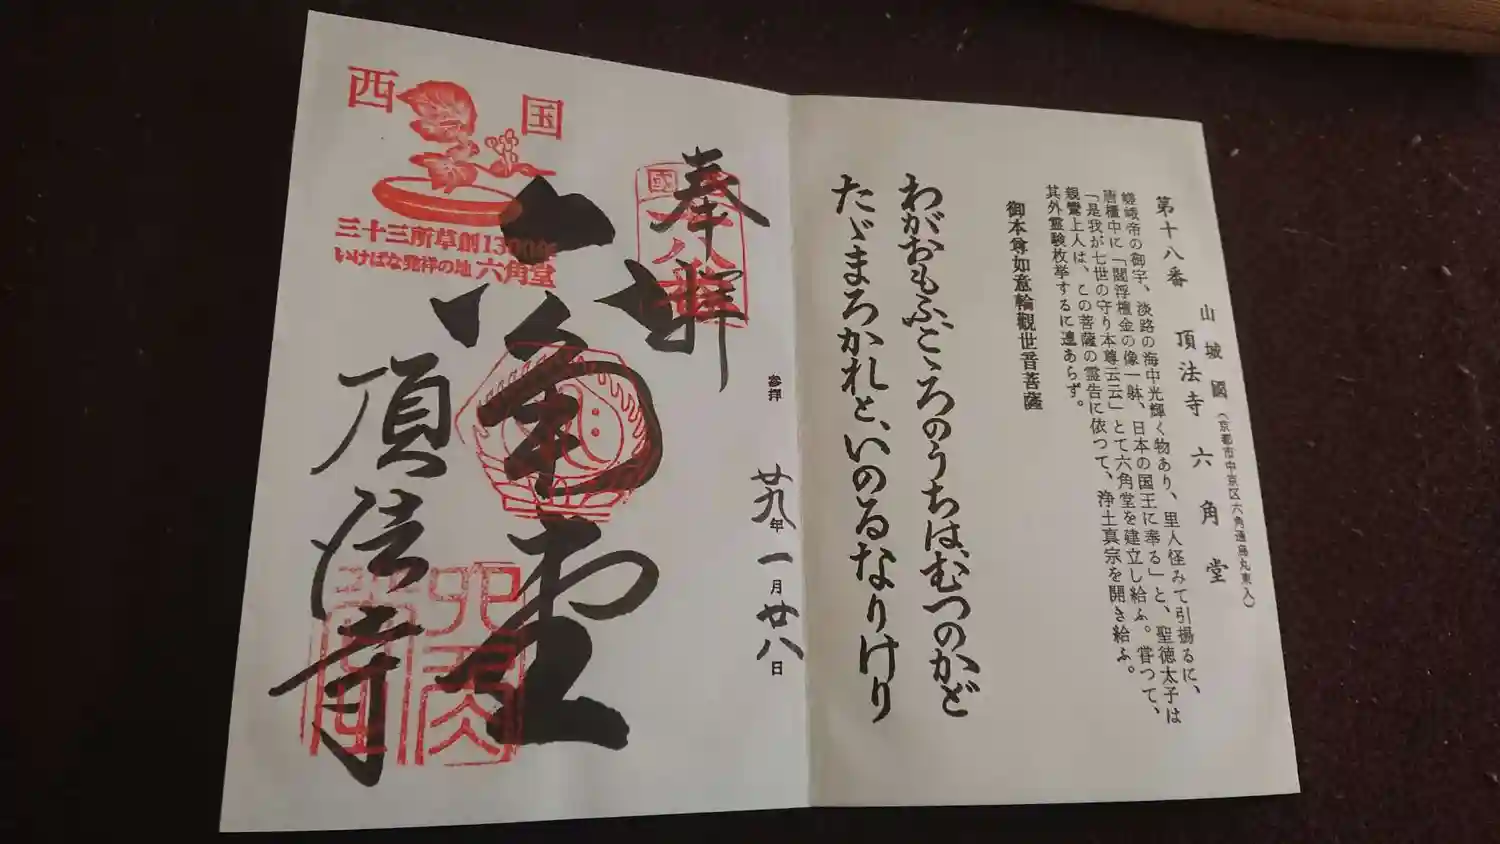 第十八番
山城國(京都市中京区六角通烏丸東入)
頂法寺 六角堂
嵯峨帝の御宇、淡路の海中光輝く物あり、里人怪みて引揚るに、
唐櫃中に「閻浮檀金の像一躰、日本の国王に奉る」と、聖徳太子は
「是我が七世の守り本尊云云」とて六角堂を建立し給ふ。嘗つて、
親鸞上人は、この菩薩の霊告に依つて、浄土真宗を開き給ふ。
其外霊験枚挙するに遑あらず。
御本尊如意輪觀世音菩薩
わがおもふこゝろのうちは、むつのかど
たゞまろかれと、いのるなりけり
奉拝
參拝 廿九年一月廿八日
六角堂
頂法寺
西国
三十三所草創1300年
いけばな発祥の地 六角堂